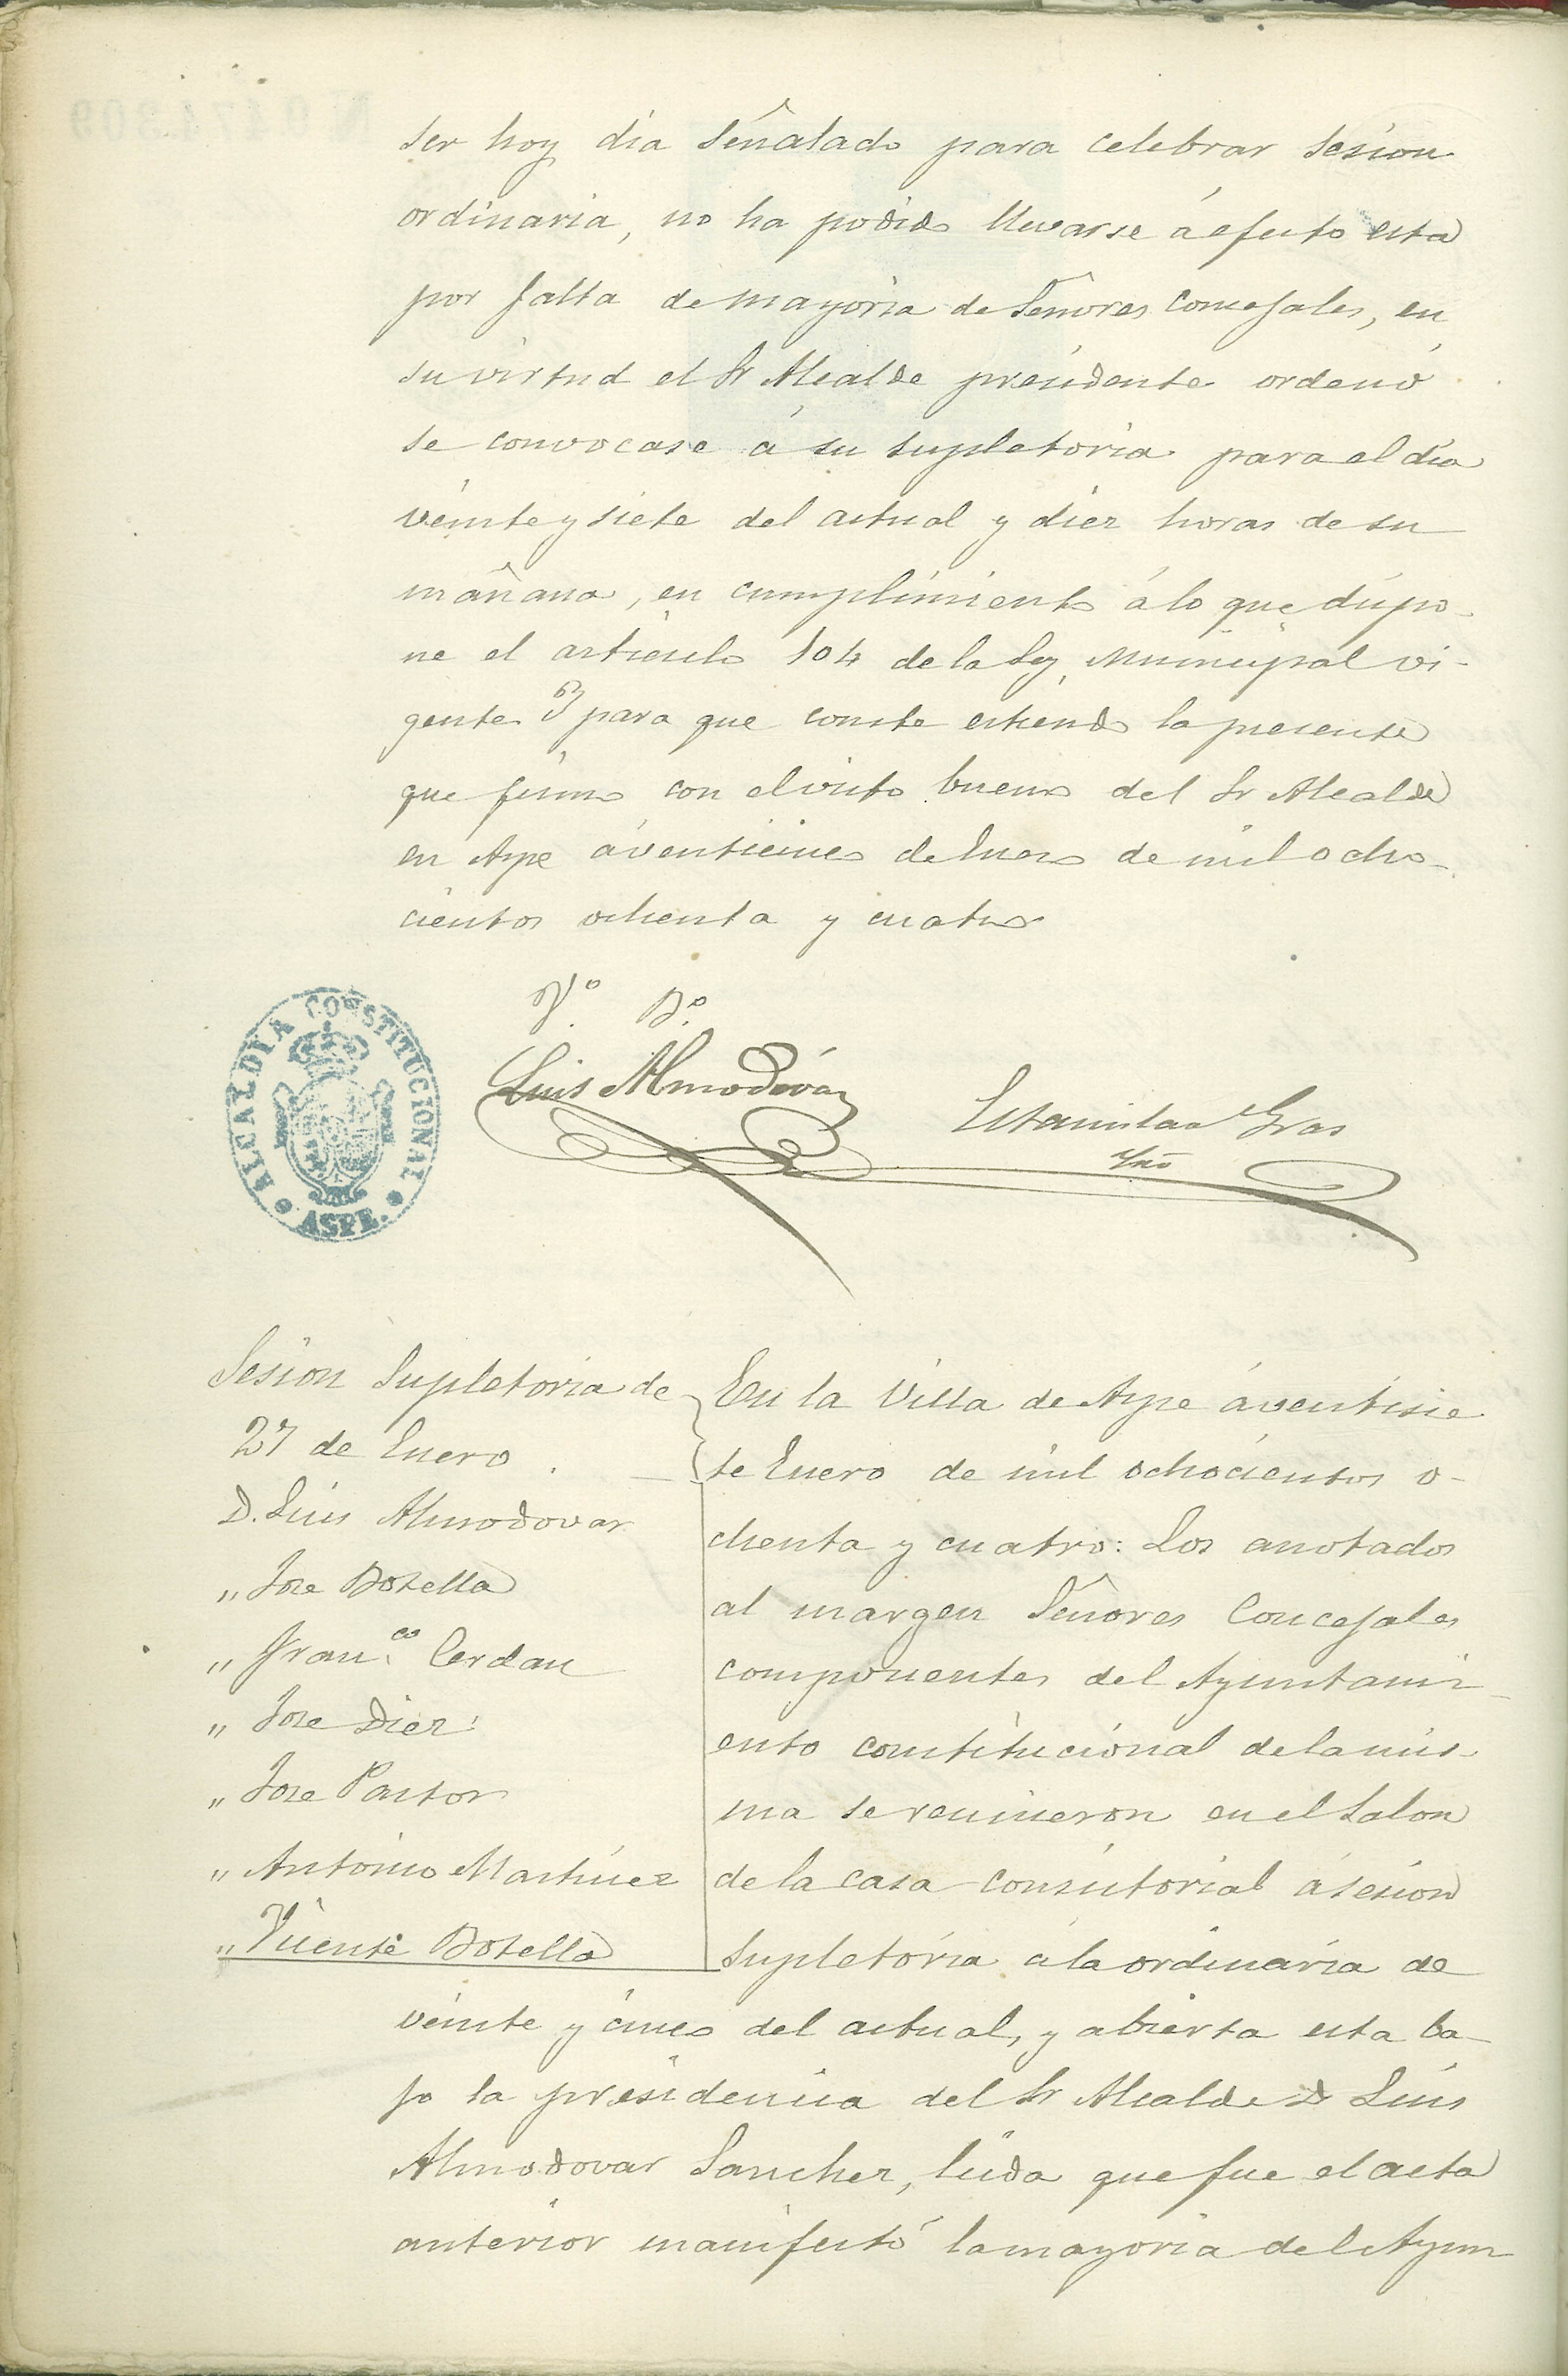 ser hoy dia señalado para celebrar sesion
ordinaria, no ha podido llevarse á efecto esta
por falta de mayoria de Señores Concejales, en
su virtud el Sr Alcalde presidente ordenó
se convocase á su supletoria para el dia
veinte y siete del actual y diez horas de su
mañana, en cumplimiento á lo que dispo-
ne el articulo 104 de la Ley Municipal vi-
gente Y para que conste estiendo la presente
que firmo con el visto bueno del Sr Alcalde
en Aspe á venticinco de Enero de mil ocho-
cientos ochenta y cuatro
Vº Bº
Luis Almodóvar
Estanislao Gras
Srio
ALCALDIA CONSTITUCIONAL
ASPE.
Sesion Supletoria de
27 de Enero.
D. Luis Almodovar
" Jose Botella
" Fran.co Cerdan
" Jose Diez
" Jose Pastor
" Antonio Martinez
" Vicente Botella
En la Villa de Aspe á ventisie
te Enero de mil ochocientos o-
chenta y cuatro: Los anotados
al margen Señores Concejales
componentes del Ayuntami-
ento constitucional de la mis-
ma se reunieron en el Salon
de la casa consistorial á sesion
supletoria a la ordinaria de
veinte y cinco del actual, y abierta esta ba-
jo la presidencia del Sr Alcalde D Luis
Almodovar Sanchez, leida que fue el acta
anterior manifestó la mayoria del Ayun